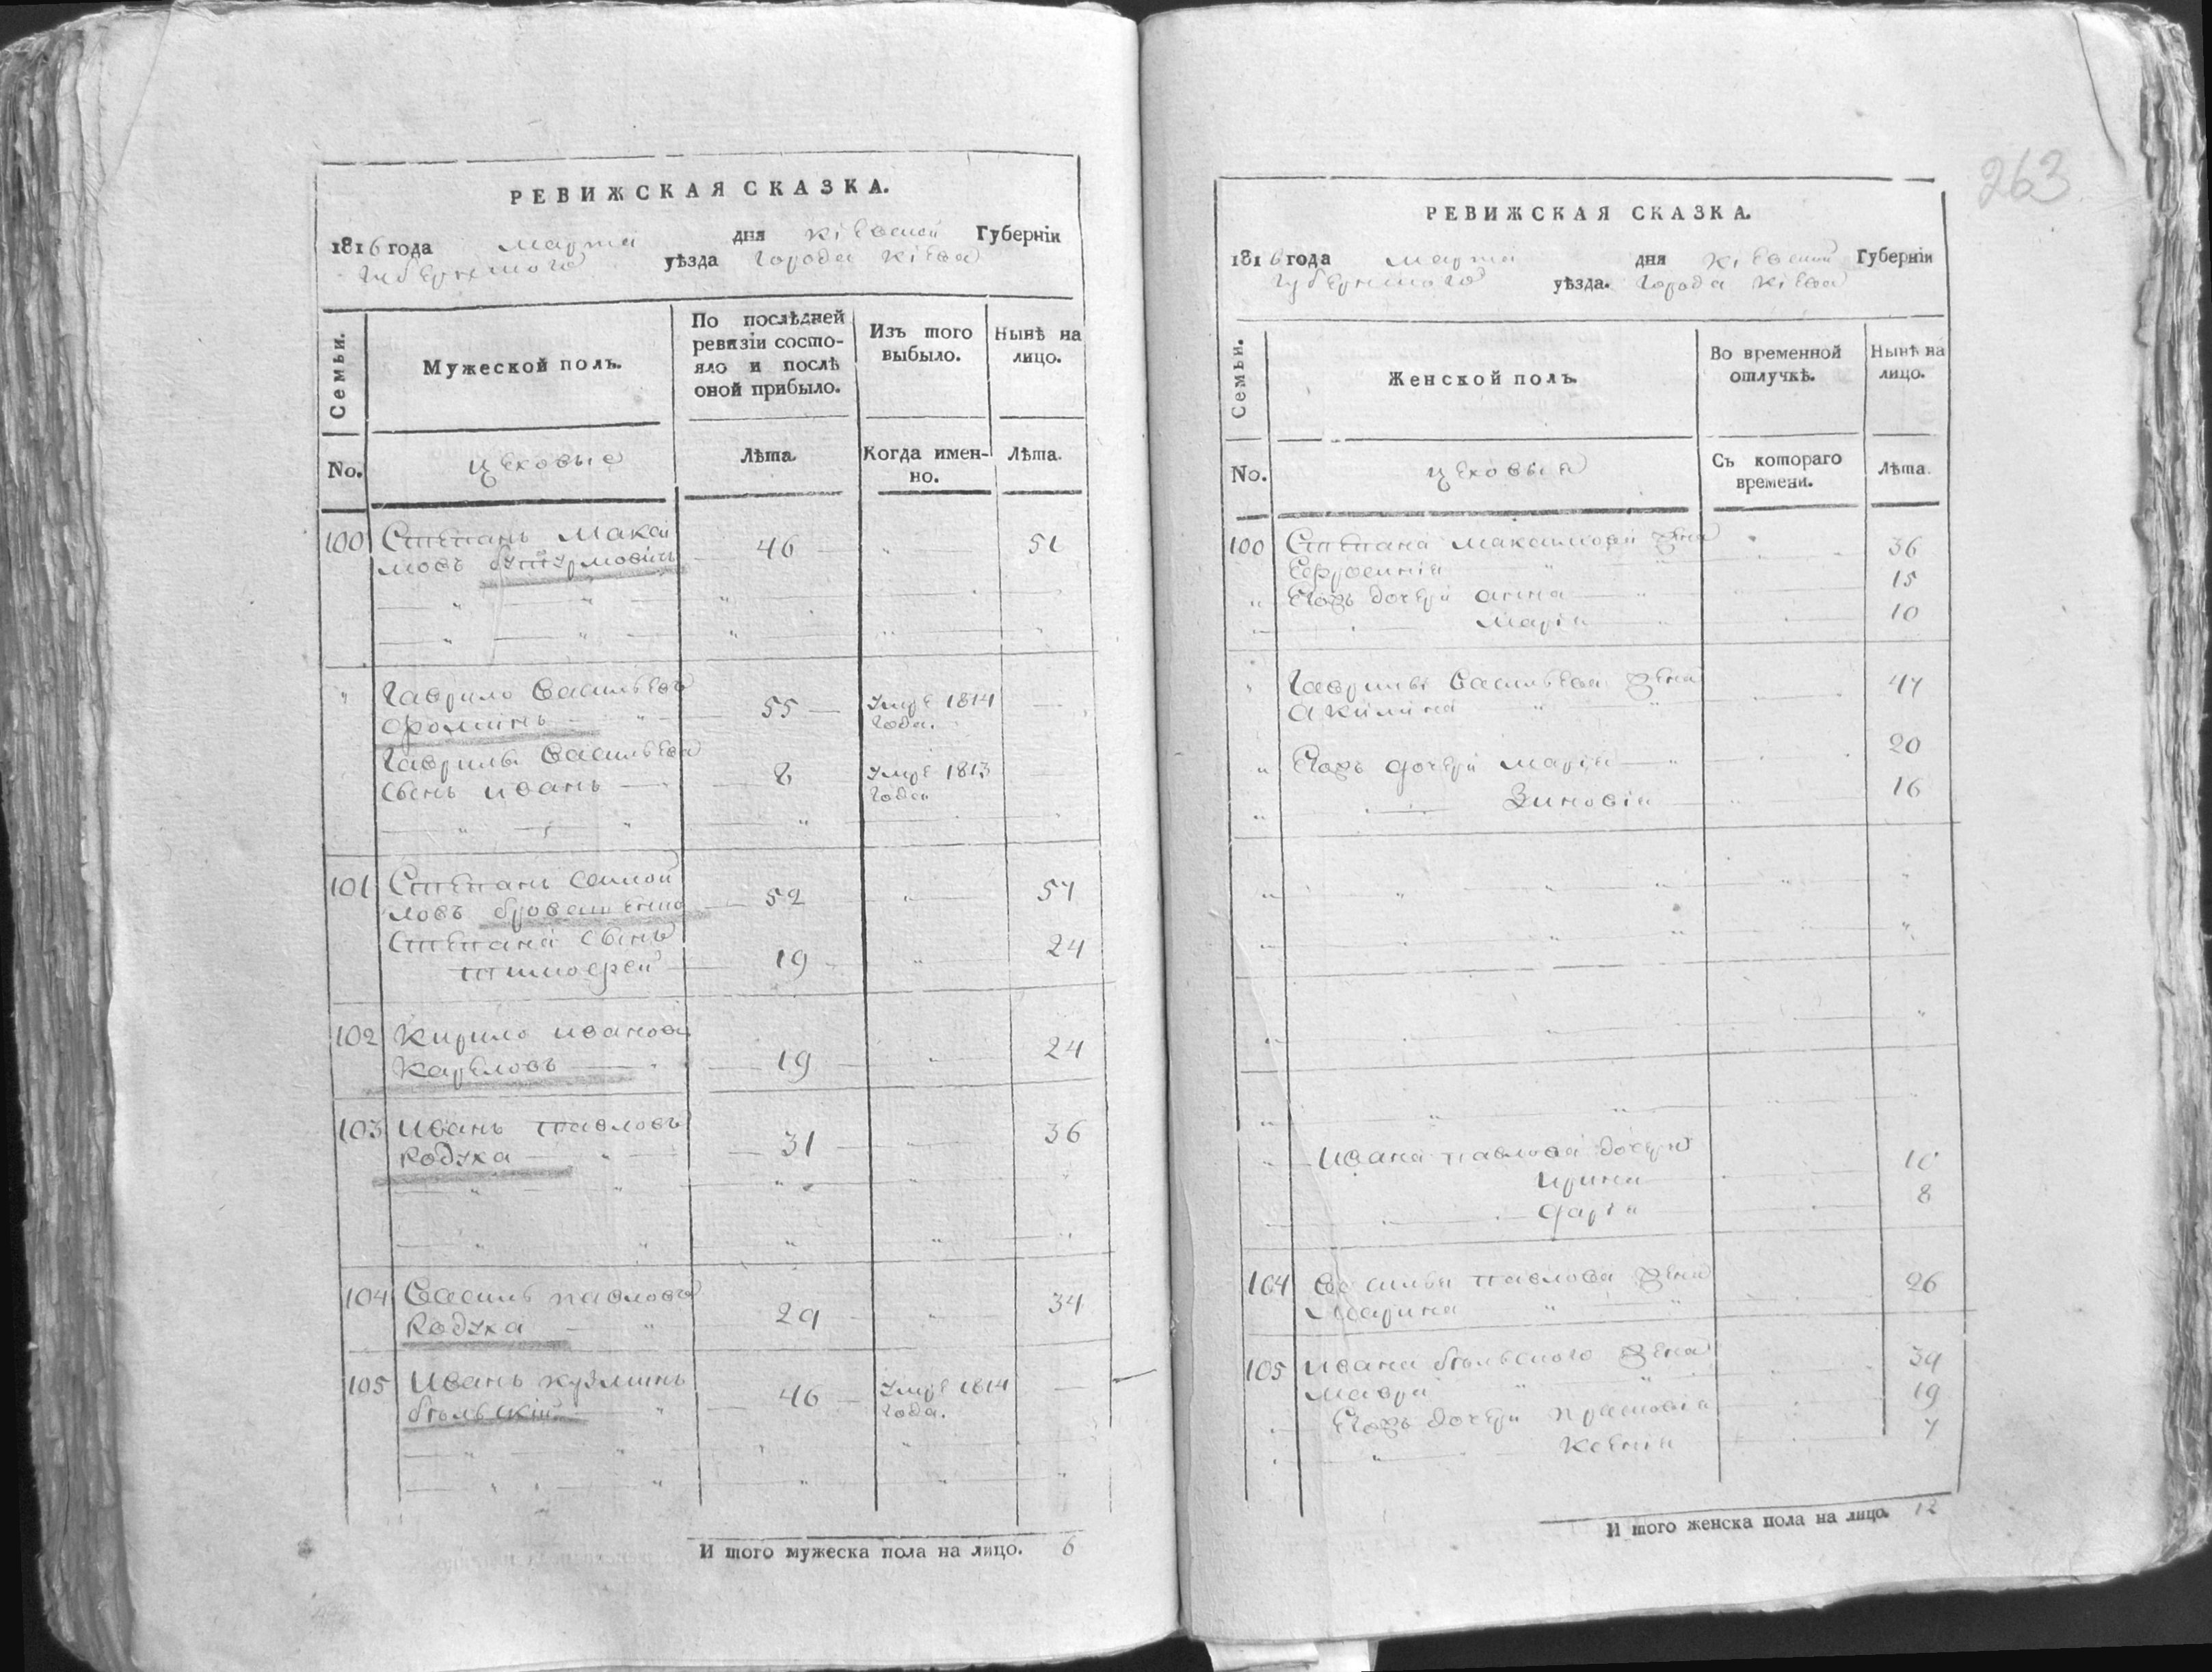 263
РЕВИЖСКАЯ СКАЗКА.
1816 года марта дня Кіевской Губерніи
Губернского уѣзда Города Кіева
Семьи.
Мужеской полъ.
По послѣдней ревизіи состояло и послѣ оной прибыло.
Изъ того выбыло.
Нынѣ на лицо.
No.
цеховые
Лѣта.
Когда именно.
Лѣта.
100 Степанъ Макси
мовъ 46 51
Гаврило Васильевъ
Фоминъ 55 Умре 1814 года.
Гаврилы Васильева
сынъ Иванъ 8 Умре 1813 года
101 Степанъ Самой
ловъ 52 57
Степана сынъ
Тимофей 19 24
102 Кирило Ивановъ
Карѣловъ 19 24
103 Иванъ Павловъ
Кодука 31 36
104 Василь Павловъ
Кодука 29 34
105 Иванъ Кузминъ
бѣльскій 46 Умре 1814 года.
И того мужеска пола на лицо. 6
РЕВИЖСКАЯ СКАЗКА.
1816 года марта дня Кіевской Губерніи
Губернского уѣзда. Города Кіева
Семьи.
Женской полъ.
Во временной отлучкѣ.
Нынѣ на лицо.
No.
цеховые
Съ котораго времени.
Лѣта.
100 Степана Максимова жена
Ефросинія 36
Егожъ дочери Анна 15
Марія 10
Гаврилы Васильева жена
Акилина 47
Егожъ дочери Марія 20
Зиновія 16
Ивана Павлова дочери
Ирина 10
Дарія 8
104 Василья Павлова жена
Марина 26
105 Ивана бѣльского жена
Мавра 39
Егожъ дочери Прасковія 19
Ксенія 7
И того женска пола на лицо. 12